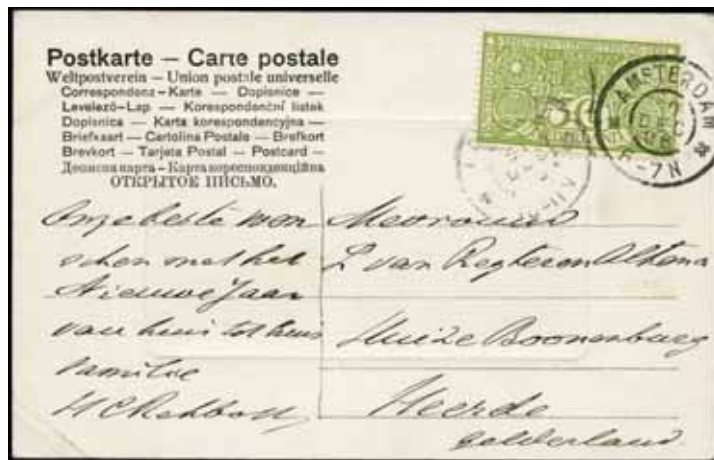 Postkarte — Carte postale
Weltpostverein — Union postale universelle
Correspondenz-Karte — Dopisnice —
Levelező-Lap — Korespondenční listek
Dopisnica — Karta korespondencyjna —
Briefkaart — Cartolina Postale — Brefkort
Brevkort — Tarjeta Postal — Postcard —
Дописна карта — Карта кореспонденційна
ОТКРЫТОЕ ПИСЬМО.
AMSTERDAM
DEC
6-7N
Onze beste wen
schen met het
Nieuwe Jaar
van huis tot huis
Familie
Mevrouw
L van Regteren Altena
Huize Boonenburg
Heerde
Gelderland